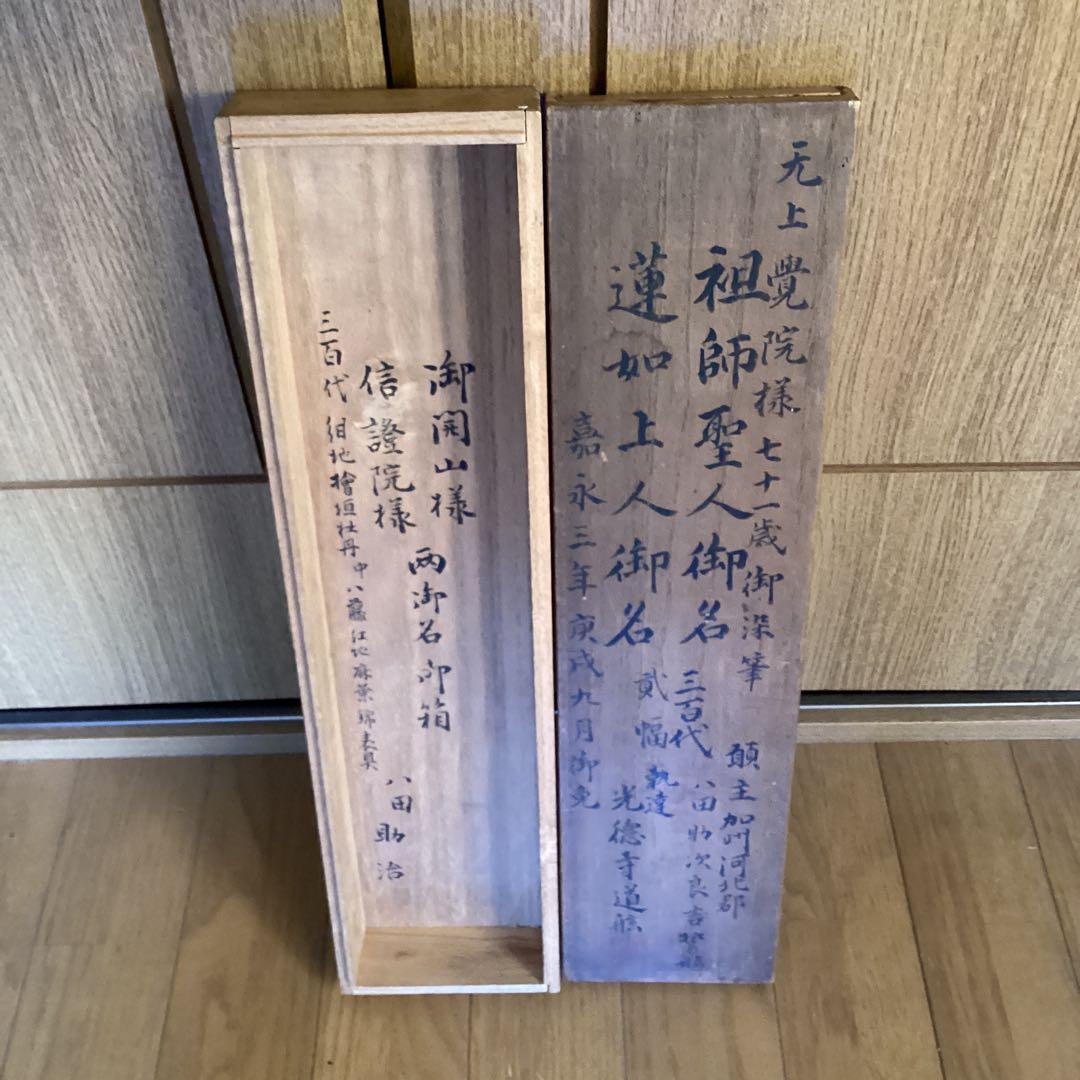 无上覺院様七十一歳御染筆
願主加州河北郡
祖師聖人御名
三百代八田助次良
蓮如上人御名
貳幅
執達
光徳寺道
嘉永三年庚戌九月御免
御開山様
信證院様
両御名御箱
三百代 紺地檜垣牡丹 中八藤紅地麻葉錦表具
八田助治